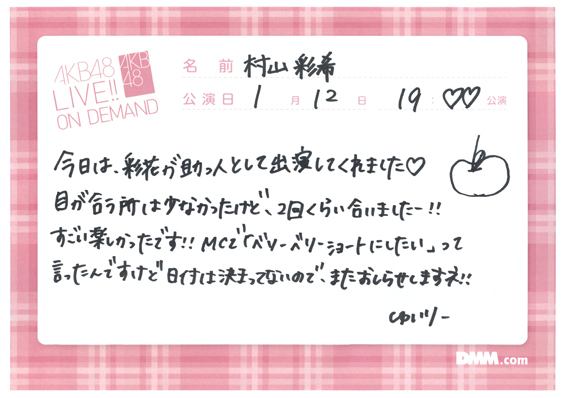 AKB48
LIVE!!
ON DEMAND
AKB
48
名前 村山彩希
公演日 1月12日 19:♡♡公演
今日は、彩花が助っ人として出演してくれました♡
目が合う所は少なかったけど、2回くらい合いましたー!!
すごい楽しかったです!! MCで「ベリーベリーショートにしたい」って
言ったんですけど日付は決まってないので、またおしらせしますネ!!
ゆいりー
DMM.com